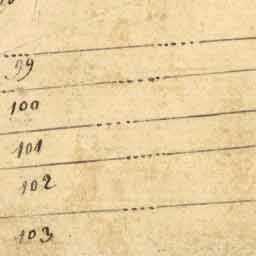 99
100
101
102
103